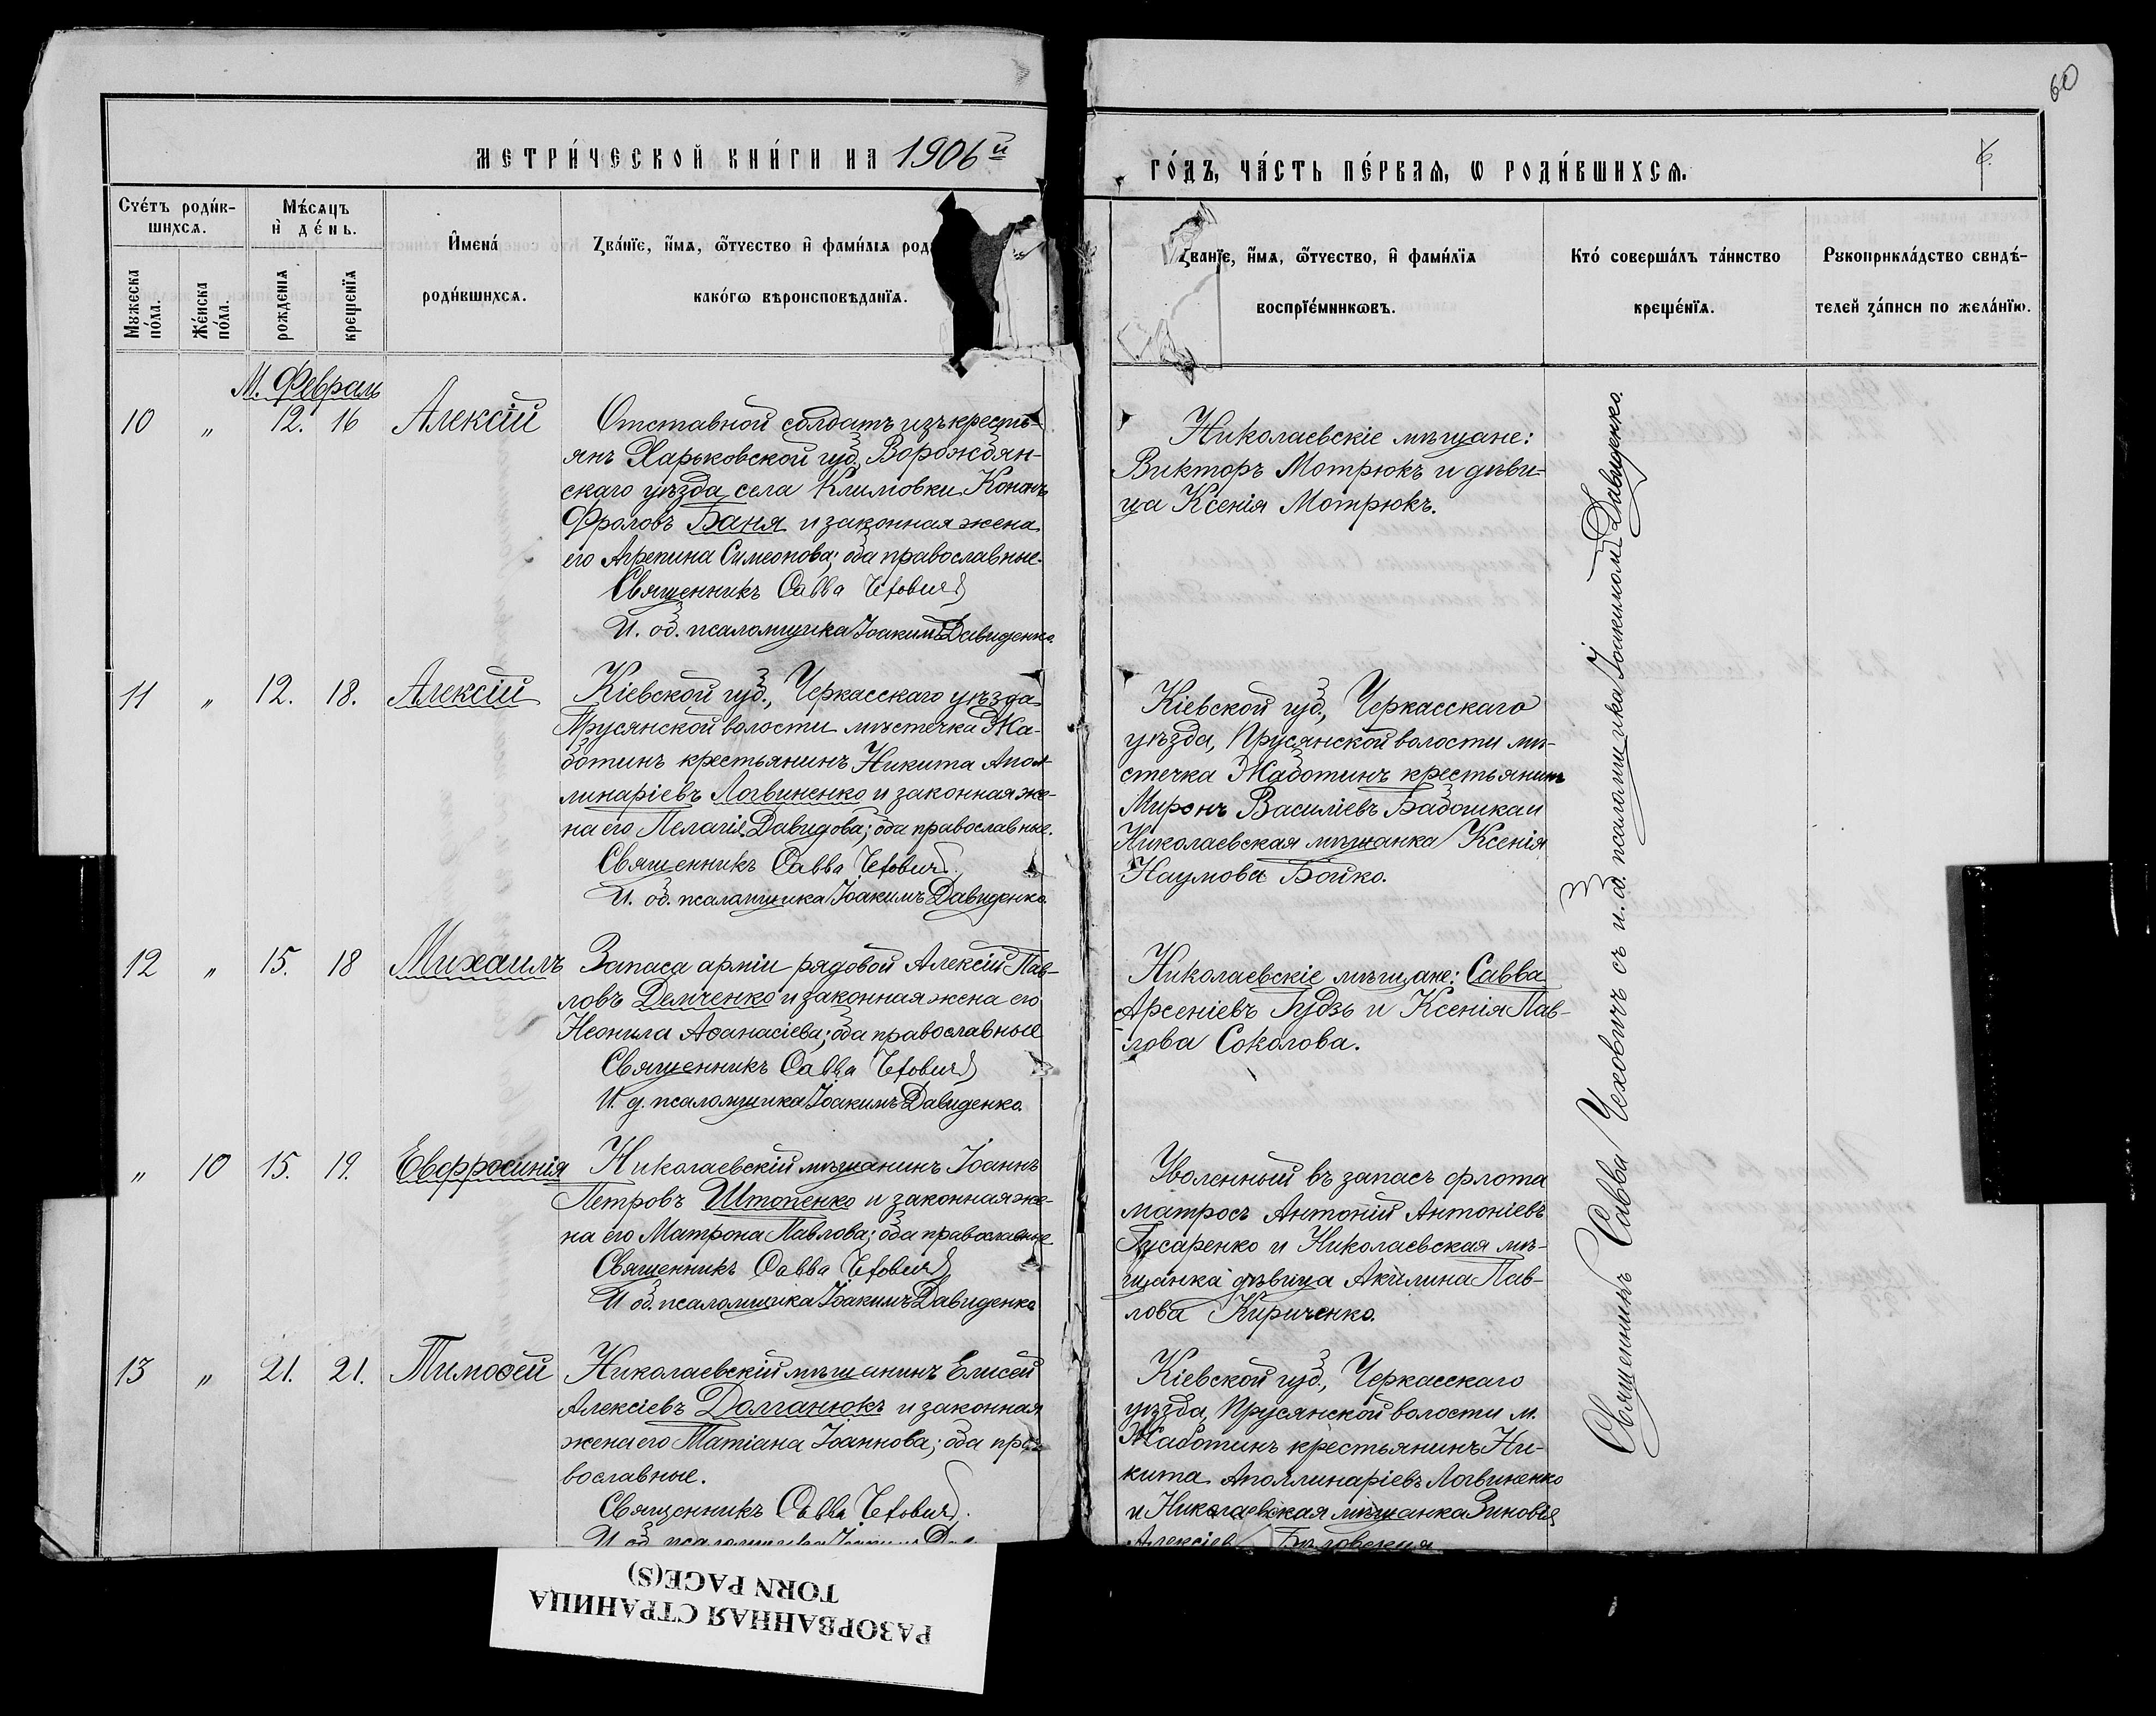 60
6.
МЕТРИ́ЧЕСКОЙ КНИ́ГИ НА 1906й
ГО́ДЪ, ЧА́СТЬ ПЕ́РВАЯ, Ѡ РОДИ́ВШИХСЯ.
Счетъ роди́в-
шихсѧ.
Мужеска
по́ла.
Же́нска
по́ла.
Мѣ́сѧцъ
и҆ де́нь.
рожденїѧ
крещенїѧ
И҆мена́
роди́вшихсѧ.
Зва́нїе, и҆́мѧ, ѻ҆́тчество и҆ фами́лїѧ род
како́гѡ вѣроисповѣданїѧ.
Зва́нїе, и҆́мѧ, ѻ҆́тчество, и҆ фами́лїѧ
воспрїе́мникѡвъ.
Кто́ соверша́лъ та́инство
креще́нїѧ.
Рукоприкла́дство свидѣ́-
телей за́писи по жела́нїю.
М. Февраль
10 „ 12. 16 Алексій
Отставной солдатъ изъ кресть-
янъ Харьковской губ., Ворождян-
скаго уѣзда села Климовки Кононъ
Фроловъ Баня и законная жена
его Агрепина Симеонова; оба православные.
Священникъ Савва Чеховичъ
И. об. псаломщика Іоакимъ Давиденко.
Николаевскіе мѣщане:
Викторъ Мотрюкъ и дѣви-
ца Ксенія Мотрюкъ.
11 „ 12. 18. Алексій
Кіевской губ., Черкасскаго уѣзда
Прусянской волости мѣстечка Жа-
ботинъ крестьянинъ Никита Апол-
линаріевъ Логвиненко и законная же-
на его Пелагія Давидова; оба православные.
Священникъ Савва Чеховичъ
И. об. псаломщика Іоакимъ Давиденко.
Кіевской губ., Черкасскаго
уѣзда, Прусянской волости мѣ-
стечка Жаботинъ крестьянинъ
Миронъ Василіевъ Бабошка и
Николаевская мѣщанка Ксенія
Наумова Бойко.
12 „ 15. 18 Михаилъ
Запаса арміи рядовой Алексій Пав-
ловъ Демченко и законная жена его
Неонила Аѳанасіева; оба православные
Священникъ Савва Чеховичъ
И. д. псаломщика Іоакимъ Давиденко.
Николаевскіе мѣщане: Савва
Арсеніевъ Гудзь и Ксенія Пав-
лова Соколова.
„ 10 15. 19. Евфросинія
Николаевскій мѣщанинъ Іоаннъ
Петровъ Штопенко и законная же-
на его Матрона Павлова; оба православные
Священникъ Савва Чеховичъ
И об. псаломщика Іоакимъ Давиденко
Уволенный въ запасъ флота
матросъ Антоній Антоніевъ
Гусаренко и Николаевская мѣ-
щанка дѣвица Акилина Пав-
лова Кириченко.
13 „ 21. 21. Тимоѳей
Николаевскій мѣщанинъ Елисей
Алексіевъ Долганюкъ и законная
жена его Татіана Іоаннова; оба пра-
вославные.
Священникъ Савва Чеховичъ.
И об. псаломщика Іоакимъ Дав
Кіевской губ., Черкасскаго
уѣзда, Прусянской волости м.
Жаботинъ крестьянинъ Ни-
кита Аполлинаріевъ Логвиненко
и Николаевская мѣщанка Зиновія
Алексіев
Священникъ Савва Чеховичъ съ и. об. псаломщика Іоакимомъ Давиденко.
РАЗОРВАННАЯ СТРАНИЦА
TORN PAGE(S)